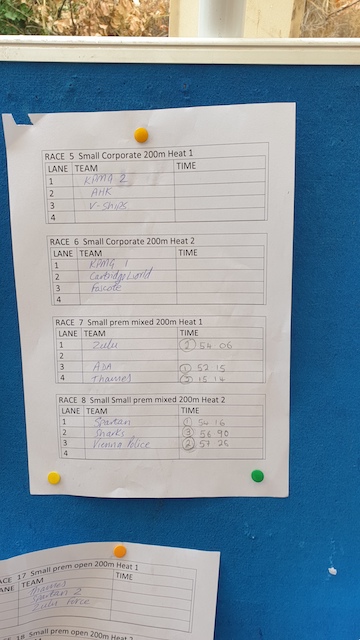 RACE 5 Small Corporate 200m Heat 1
LANE TEAM TIME
1 KPMG 2
2 AHK
3 V-SHIPS
4
RACE 6 Small Corporate 200m Heat 2
LANE TEAM TIME
1 KPMG 1
2 Cartridge World
3
4
RACE 7 Small prem mixed 200m Heat 1
LANE TEAM TIME
1 Zulu ② 54 06
2
3 ADA ① 52 15
4 Thames ③ 15 14
RACE 8 Small Small prem mixed 200m Heat 2
LANE TEAM TIME
1 Spartan ① 54 16
2 Sharks ③ 56 90
3 Vienna Police ② 57 25
4
ACE 17 Small prem open 200m Heat 1
ANE TEAM TIME
Thames
Spartan 2
Zulu Force
18 Small prem open 200m Heat 2